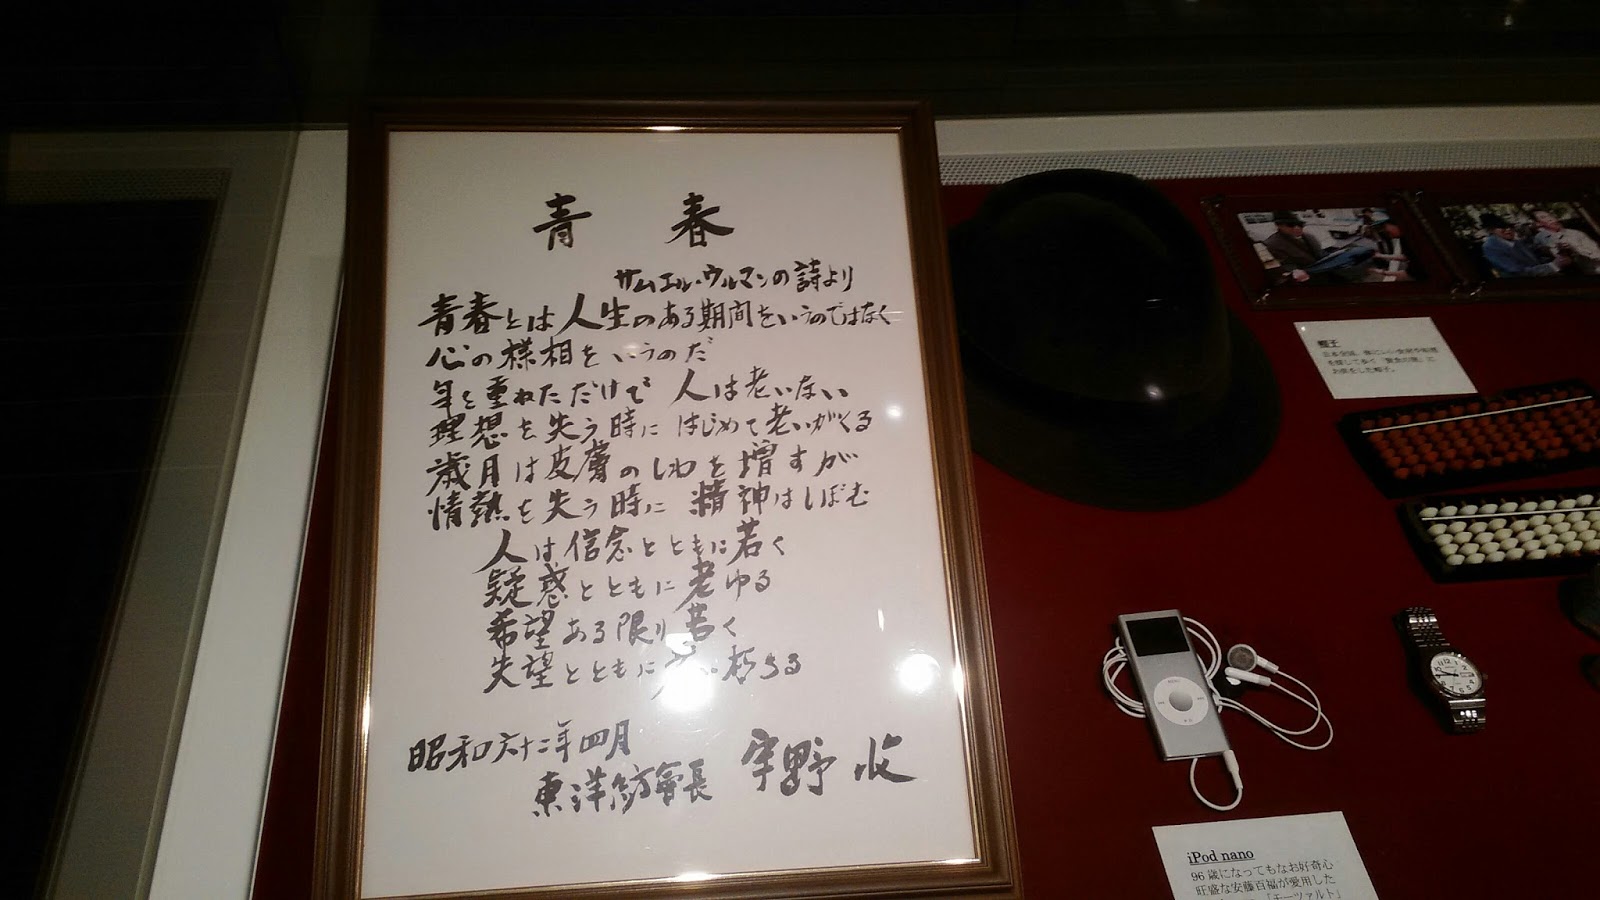 青春
サムエル・ウルマンの詩より
青春とは人生のある期間をいうのではなく
心の様相をいうのだ
年を重ねただけで 人は老いない
理想を失う時に はじめて老いがくる
歳月は皮膚のしわを増すが
情熱を失う時に 精神はしぼむ
人は信念とともに若く
疑惑とともに老ゆる
希望ある限り若く
失望とともに老い朽ちる
昭和六十二年四月
東洋紡會長 宇野收
帽子
iPod nano
96歳になってもなお好奇心
旺盛な安藤百福が愛用した
「モーツァルト」